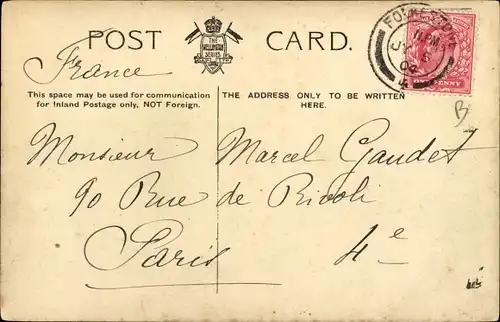 POST CARD.
THE
WELLINGTON
SERIES
FOLKESTONE
France
This space may be used for communication
for Inland Postage only, NOT Foreign.
THE ADDRESS ONLY TO BE WRITTEN
HERE.
Monsieur Marcel Gaudet
90 Rue de Rivoli
Paris 4e
B